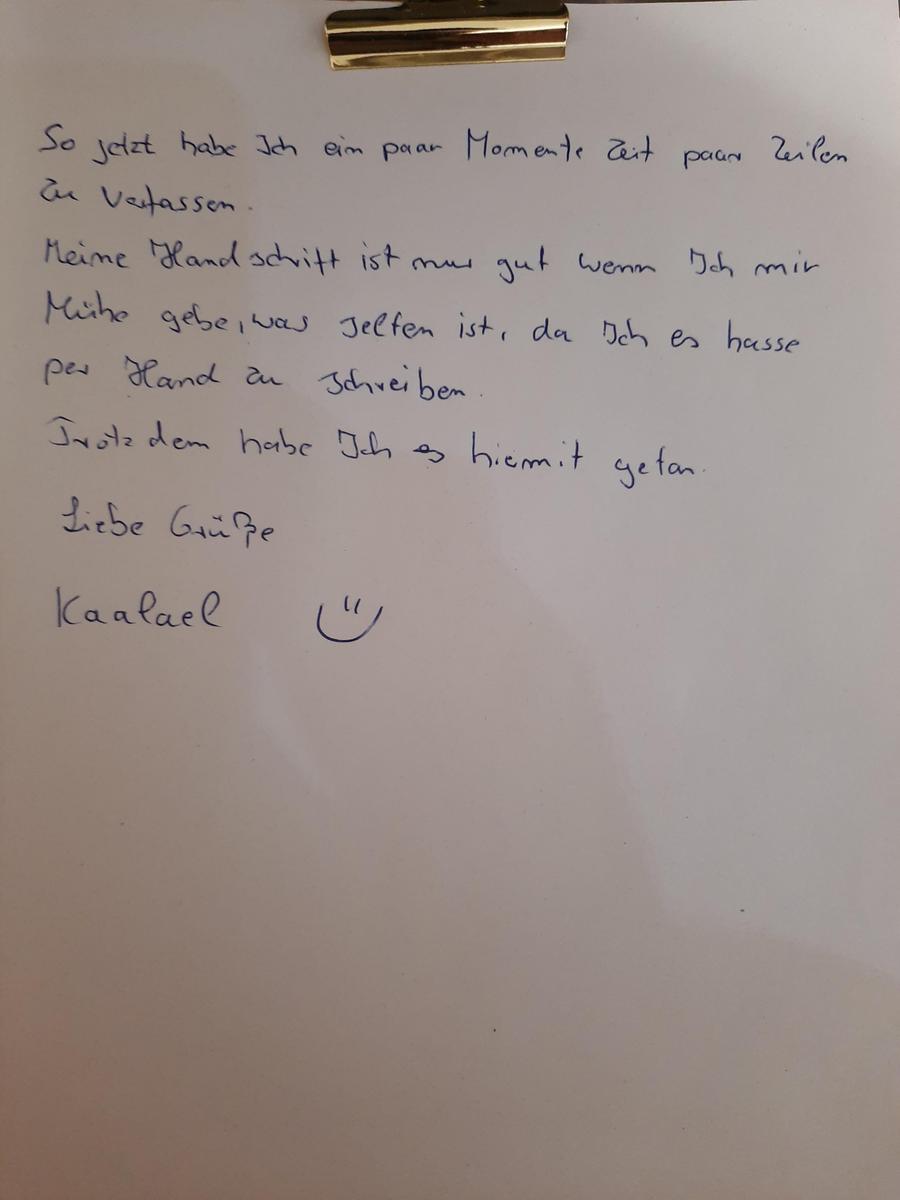 So jetzt habe Ich ein paar Momente Zeit paar Zeilen
zu verfassen.
Meine Handschrift ist nur gut wenn Ich mir
Mühe gebe, was selten ist, da Ich es hasse
per Hand zu schreiben.
Trotzdem habe Ich es hiermit getan.
Liebe Grüße
Kaalael